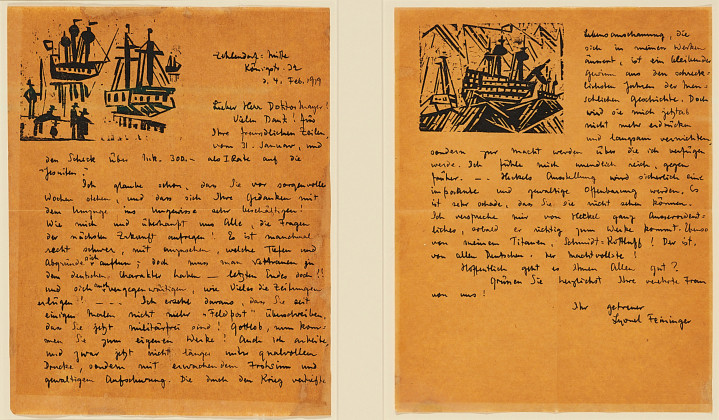 Zehlendorf-Mitte
Königstr. 32
d. 4. Feb. 1919
Lieber Herr Doktor Mayer!
Vielen Dank! für
Ihre freundlichen Zeilen,
vom 31. Januar, und
den Scheck über Mk. 300.- als I Rate auf die
"Jesuiten".
Ich glaube schon, dass Sie vor sorgenvollen
Wochen stehen und dass sich Ihre Gedanken mit
dem Umzuge ins Ungewisse sehr beschäftigen!
Wie mich und überhaupt uns Alle, die Fragen
der nächsten Zukunft aufregen! Es ist manchmal
recht schwer, mit anzusehen, welche Tiefen und
Abgründe sich auftun; doch muss man Vertrauen in
den deutschen Charakter haben – letzten Endes doch!!
und sich auch vergegenwärtigen, wie Vieles die Zeitungen
erlügen! – – – Ich ersehe daraus, dass Sie seit
einigen Malen nicht mehr "Feldpost" überschreiben,
dass Sie jetzt militärfrei sind! Gottlob, nun kom-
men Sie zum eigenen Werke! Auch ich arbeite,
und zwar jetzt nicht länger unter qualvollem
Drucke, sondern mit erwachendem Frohsinn und
gewaltigem Aufschwung. Die durch den Krieg vertiefte
Lebensanschauung, die
sich in meinen Werken
äussert, ist ein bleibender
Gewinn aus den schreck-
lichsten Jahren der Men-
schlichen Geschichte. Doch
wird sie mich jetzt
nicht mehr erdrücken
und langsam vernichten,
sondern zur Macht werden über die ich verfügen
werde. Ich fühle mich unendlich reich, gegen
früher. – – Heckels Ausstellung wird sicherlich eine
imposante und gewaltige Offenbarung werden. Es
ist sehr schade, dass Sie sie nicht sehen können.
Ich verspreche mir von Heckel ganz Ausserordent-
liches, sobald er richtig zum Werke kommt. Ebenso
von meinem Titanen Schmidt-Rottluff! Der ist,
von allen Deutschen, der Machtvollste!
Hoffentlich geht es Ihnen Allen gut?
Grüssen Sie herzlichst Ihre verehrte Frau
von uns!
Ihr getreuer
Lyonel Feininger